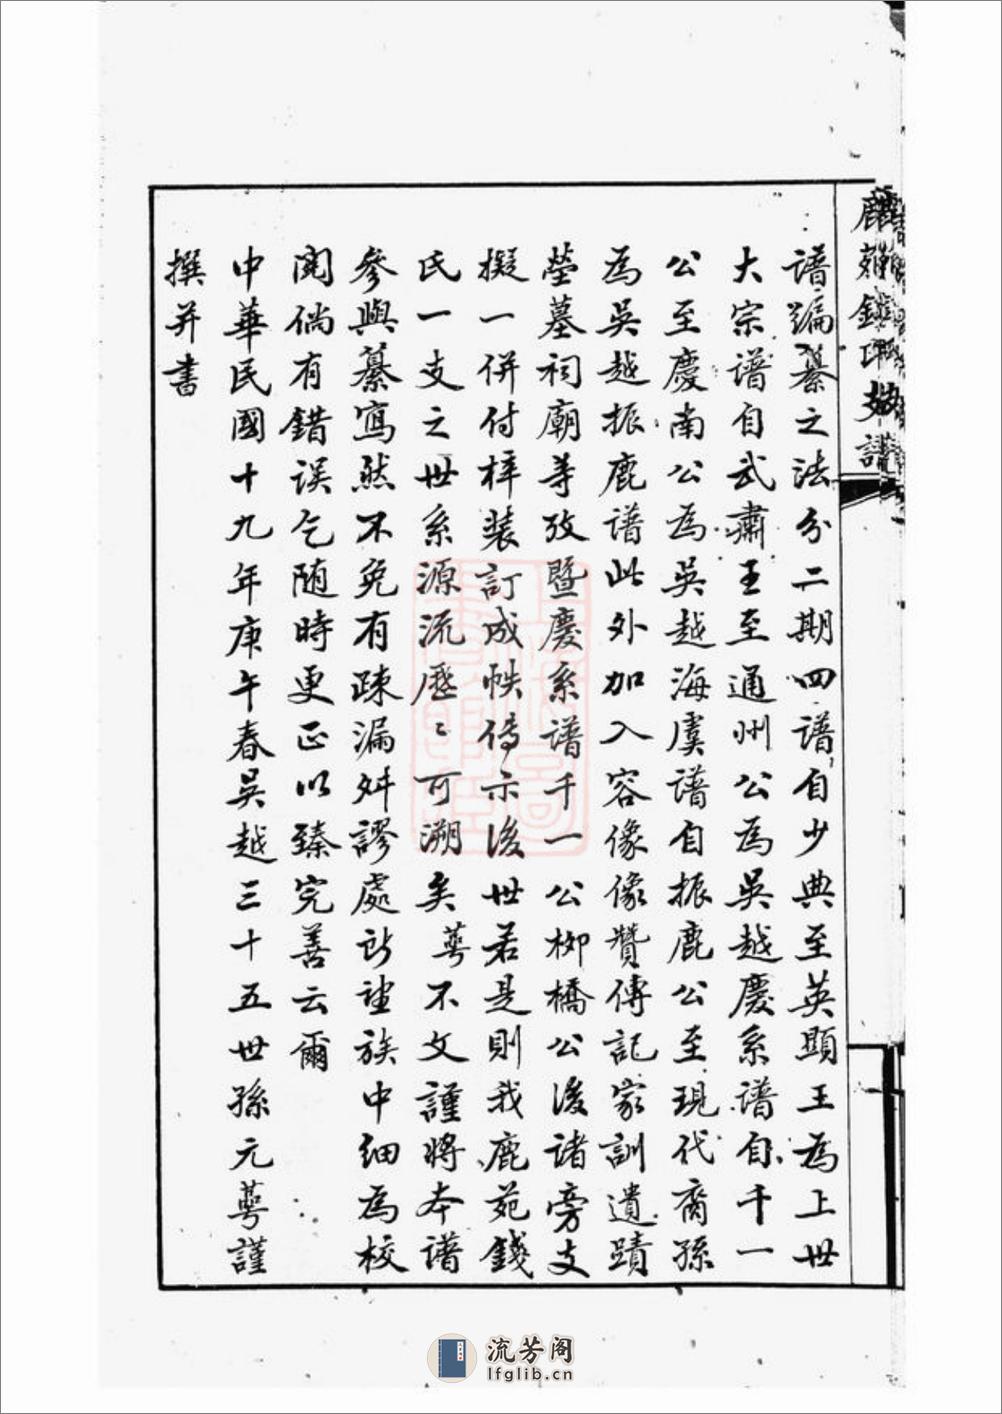 譜編纂之法分二期四譜自少典至英顯王為上世
大宗譜自武肅王至通州公為吳越慶系譜自千一
公至慶南公為吳越海虞譜自振鹿公至現代裔孫
為吳越振鹿譜此外加入容像像贊傳記家訓遺蹟
塋墓祠廟等攷暨慶系譜千一公柳橋公後諸旁支
擬一併付梓裝訂成帙傳示後世若是則我鹿苑錢
氏一支之世系源流歷〻可溯矣萼不文謹將本譜
參與纂寫然不免有疎漏舛謬處所望族中細為校
閱倘有錯误乞随時更正以臻完善云爾
中華民國十九年庚午春吳越三十五世孫元萼謹
撰并書
流芳阁
lfglib.cn